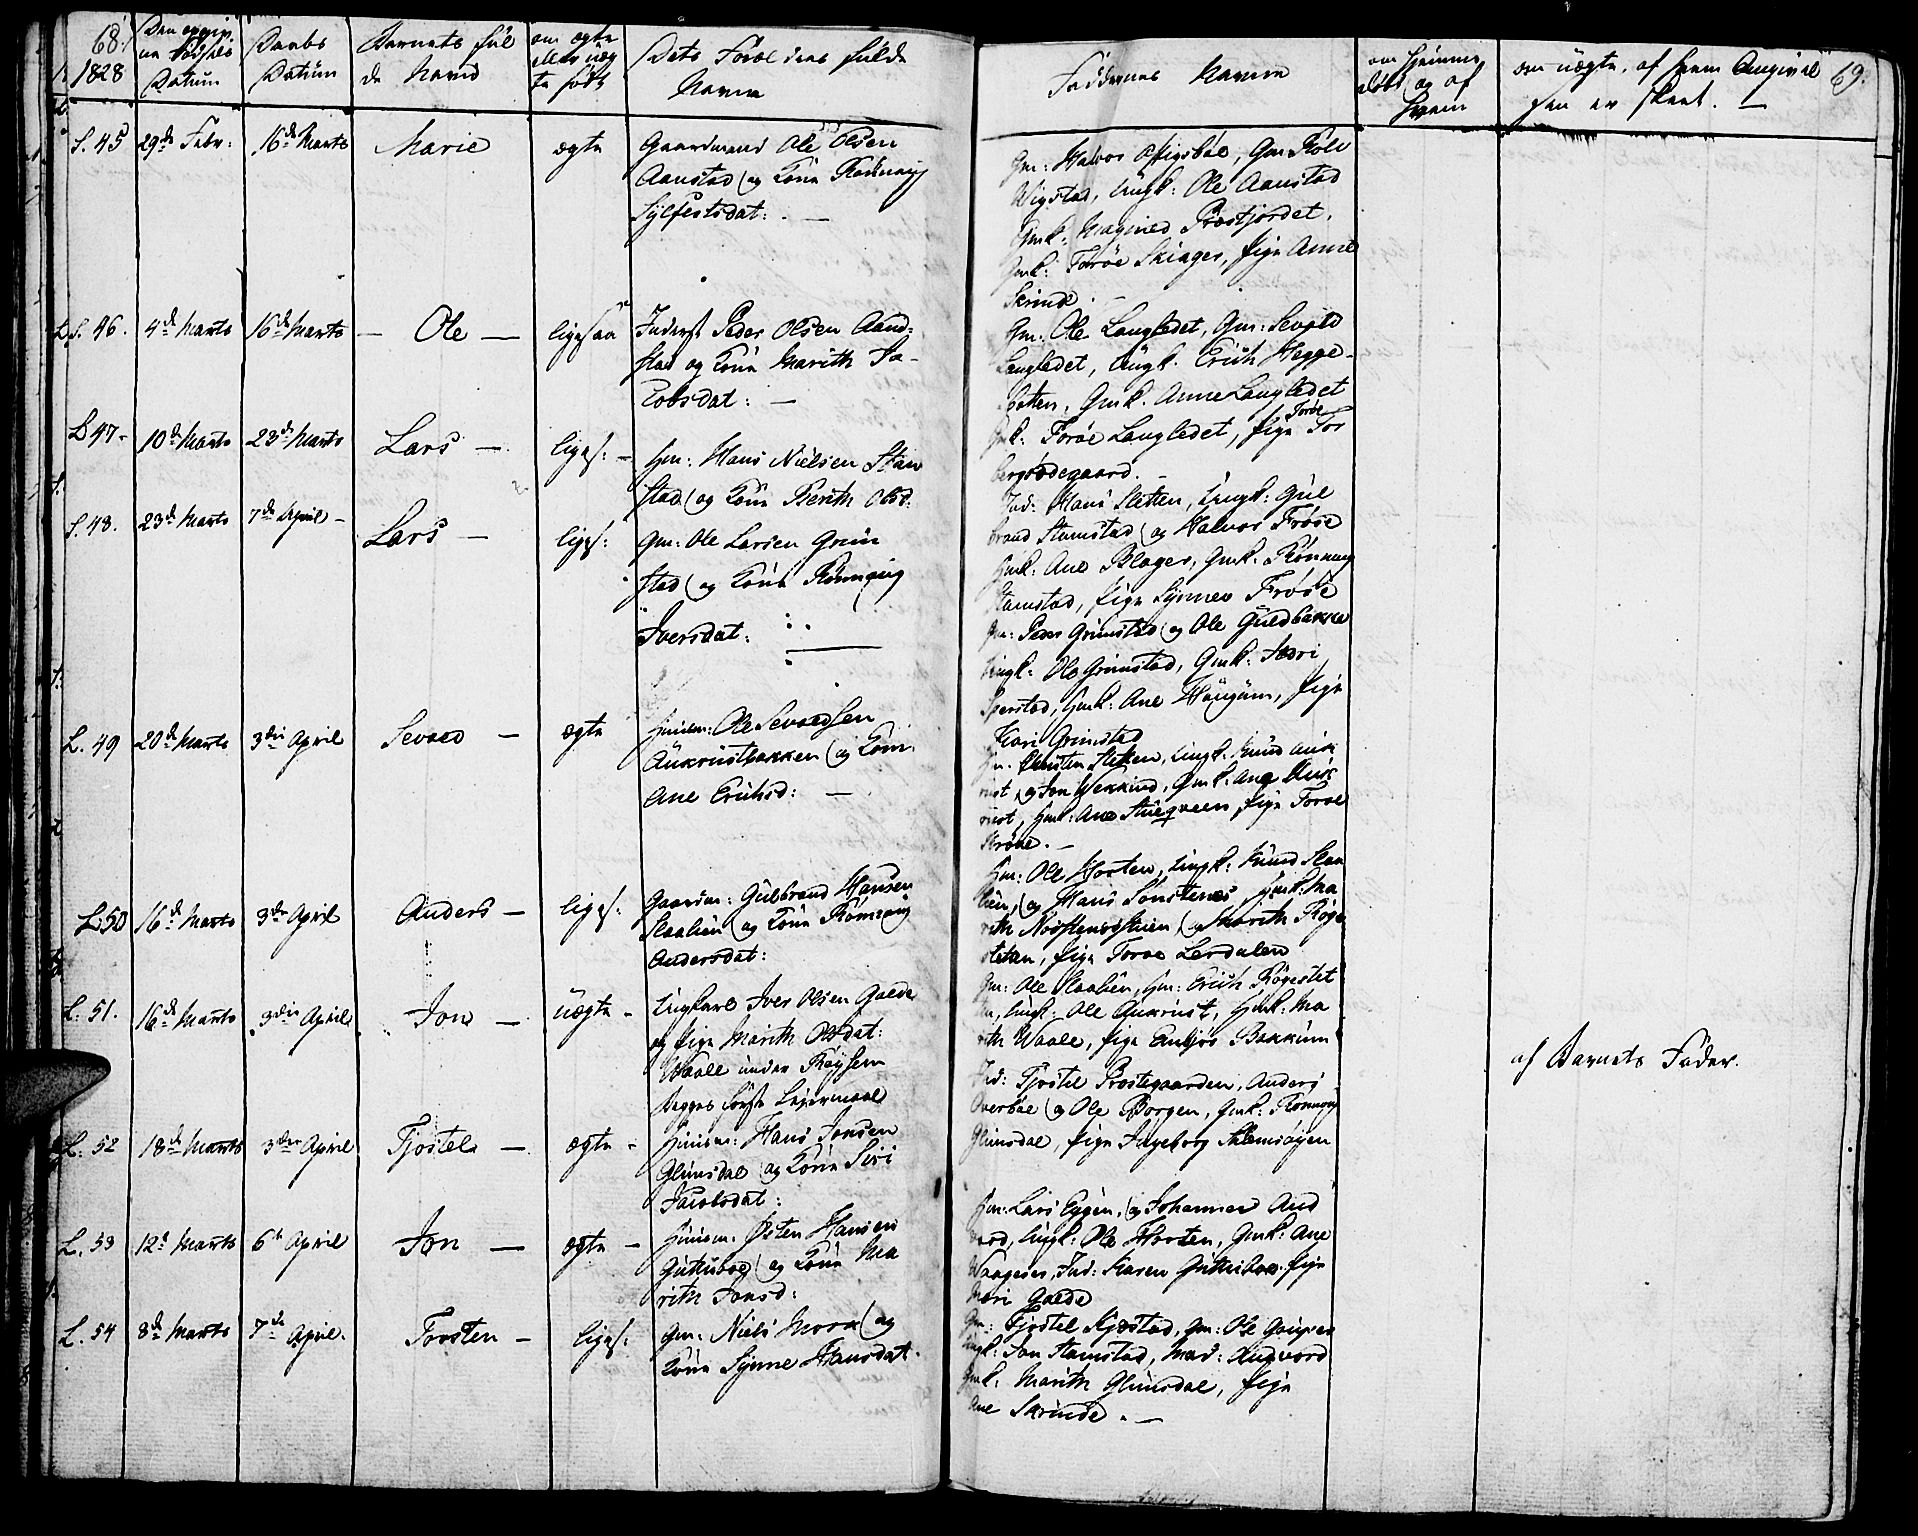 68.
1828
Den opgiv
ne Fødsels
Datum
Daabs
Datum
Barnets ful
de Navn
om ægte
eller uæg
te født
Dets Forældres fulde
Navne
Faddernes Navne
om hjemme
døbt og af
hvem
om uægte, af hvem Angivel
sen er skeet. —
69.
S. 45 29de Febr: 16de Marts Marie ægte
Gaardmand Ole Olsen
Aanstad og Kone Rønnaug
Sylfestsdat: . —
Gm: Halvor Wigsbøe, Gm: Rolv
Wigstad, Ungk: Ole Aanstad
Gmk: Magnild Præstjordet,
Gmk: Torøe Skiager, Pige Anne
Skrinde. —
S. 46. 4de Marts 16de Marts — Ole — ligesaa
Inderst Peder Olsen Aand-
stad og Kone Marith Ja-
kobsdat: —
Gm: Ole Langledet, Gm: Sevold
Langledet, Ungk. Erich Hegge-
botten, Gmk. Anne Langledet
Gmk: Torøe Langledet, Pige Tor
bergsødegaard. —
L 47. 10de Marts 23de Marts Lars — liges: —
Hm: Hans Nielsen Stam
stad og Kone Berith Olsd:
Ind: Hans Sletten, Ungk: Gul
brand Stamstad og Halvor Frøse
Gmk: Ane Blager, Gmk: Rønnaug
Stamstad, Pige Synnev Frøse
S. 48. 23de Marts 7de April — Lars — liges:
Gm: Ole Larsen Grim
stad og Kone Rønnaug
Iversdat:
Gm: Peder Grimstad og Ole Guldbakke
Ungk: Ole Grimstad, Gmk: Kari
Sperstad, Hmk: Ane Haugum, Pige
Kari Grimstad
L. 49 20de Marts 3die April Sevald — ægte
Huusm: Ole Sevaldsen
Aukrustbakken og Kone
Ane Erichsd: —
Hm: Christen Sletten, Ungk: Knud Auk
rust, og Jon Wekkind, Gmk: Ane Auk
rust, Hmk: Ane Stueqveen Pige Toroe
L. 50 16de Marts 3die April Anders — liges:
Gaardm: Gulbrand Hansen
Slaalien og Kone Rønnaug
Andersdat:
Hm: Ole Horten, Ungk: Knud Slaa
lien, og Hans Sonstenes, Hmk: Ma
rith Nordstensstuen, og Marith Røge
stetten, Pige Toroe Lerdalen
L. 51. 16de Marts 3die April Jon — uægte —
Ungkarl Iver Olsen Gaede
og Pige Marith Olsdat:
Waale under Røysem
begges første Leiermaal
Gm: Ole Slaalien, Hm: Erich Røgestet
ten, Ungk: Ole Aukrust, Hmk: Ma
rith Waale, Pige Eubjør Bakkum
af Barnets Fader.
L. 52 18de Marts 3die April Tjostel — ægte —
Huusm: Hans Jonsen
Glimsdal og Kone Siri
Jacobsdat:
Ind: Tjostel Prestegaarden, Anders
Overbøe og Ole Borgen, Gmk: Rønnaug
Glimsdal, Pige Ingeborg
L. 53 12te Marts 6te April Jon — ægte —
Huusm: Østen Hansen
Gutubøe og Kone Ma
rith Jonsd:
Hm: Lars Eggen, og Johannes And
vord, Ungk: Ole Horten, Gmk: Ane
Waageset, Ind: Karen Gutubøe Pige
Mari Gaede
L. 54 8de Marts 7de April. Torsten — liges:
Gm: Niels Mork og
Kone Synne Hansdat.
Gm: Tjostel Kjæstad, Gm: Ole
Ungk: Jon Stamstad, Mad: Andvord
Gmk: Marith Glimsdal, Pige
Ane Skrinde. —